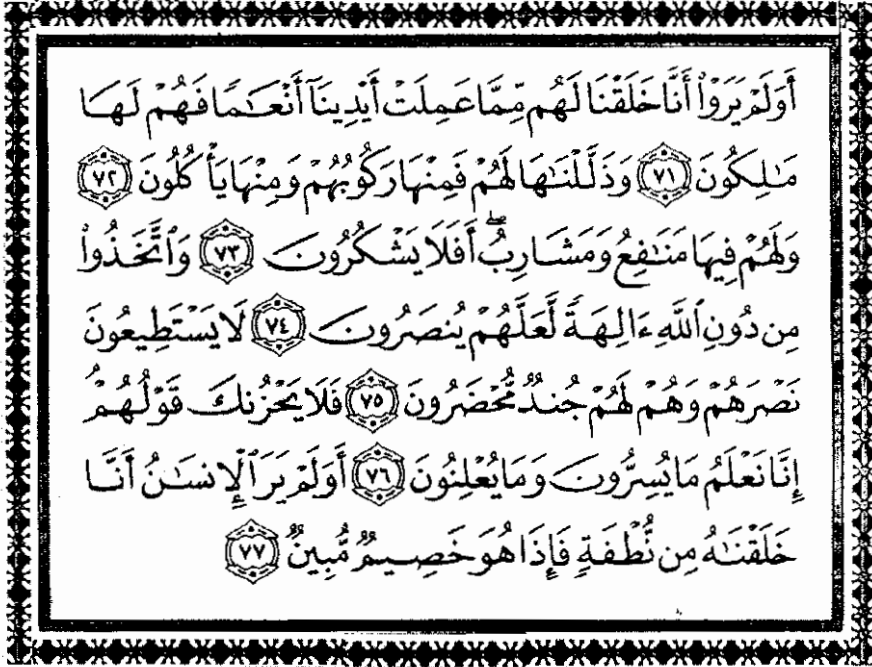 أَوَلَمْ يَرَوْا۟ أَنَّا خَلَقْنَا لَهُم مِّمَّا عَمِلَتْ أَيْدِينَآ أَنْعَـٰمًا فَهُمْ لَهَا
مَـٰلِكُونَ ٧١ وَذَلَّلْنَـٰهَا لَهُمْ فَمِنْهَا رَكُوبُهُمْ وَمِنْهَا يَأْكُلُونَ ٧٢
وَلَهُمْ فِيهَا مَنَـٰفِعُ وَمَشَارِبُ ۖ أَفَلَا يَشْكُرُونَ ٧٣ وَٱتَّخَذُوا۟
مِن دُونِ ٱللَّهِ ءَالِهَةً لَّعَلَّهُمْ يُنصَرُونَ ٧٤ لَا يَسْتَطِيعُونَ
نَصْرَهُمْ وَهُمْ لَهُمْ جُندٌ مُّحْضَرُونَ ٧٥ فَلَا يَحْزُنكَ قَوْلُهُمْ
إِنَّا نَعْلَمُ مَا يُسِرُّونَ وَمَا يُعْلِنُونَ ٧٦ أَوَلَمْ يَرَ ٱلْإِنسَـٰنُ أَنَّا
خَلَقْنَـٰهُ مِن نُّطْفَةٍ فَإِذَا هُوَ خَصِيمٌ مُّبِينٌ ٧٧